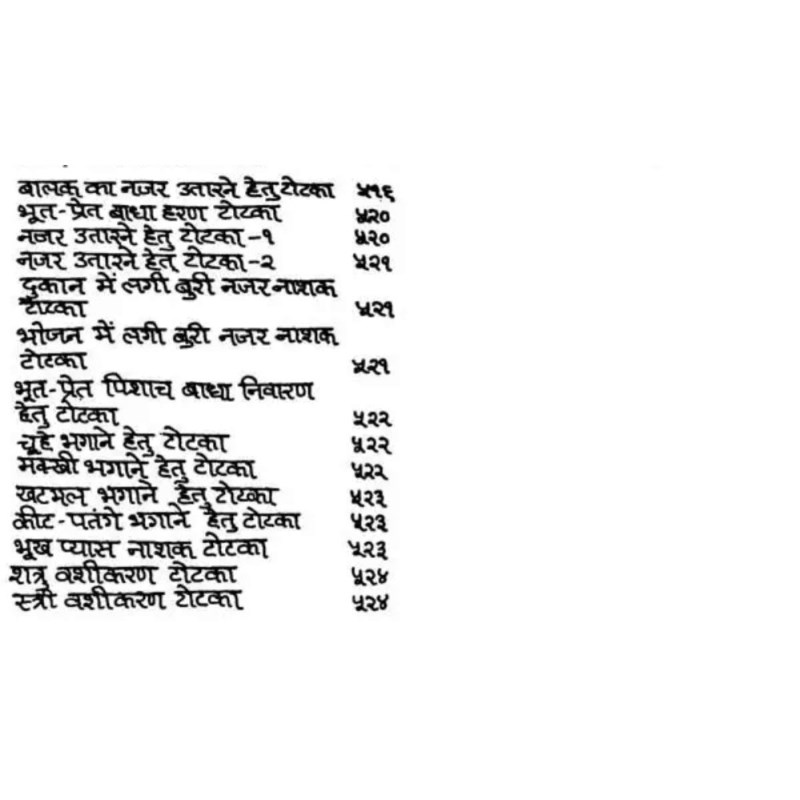 बालक का नजर उतारने हेतु टोटका ५१६
भूत-प्रेत बाधा हरण टोटका ५२०
नजर उतारने हेतु टोटका-१ ५२०
नजर उतारने हेतु टोटका-२ ५२१
दुकान में लगी बुरी नजर नाशक
टोटका ५२१
भोजन में लगी बुरी नजर नाशक
टोटका ५२१
भूत-प्रेत पिशाच बाधा निवारण
हेतु टोटका ५२२
चूहे भगाने हेतु टोटका ५२२
मक्खी भगाने हेतु टोटका ५२२
खटमल भगाने हेतु टोटका ५२३
कीट-पतंगे भगाने हेतु टोटका ५२३
भूख प्यास नाशक टोटका ५२३
शत्रु वशीकरण टोटका ५२४
स्त्री वशीकरण टोटका ५२४